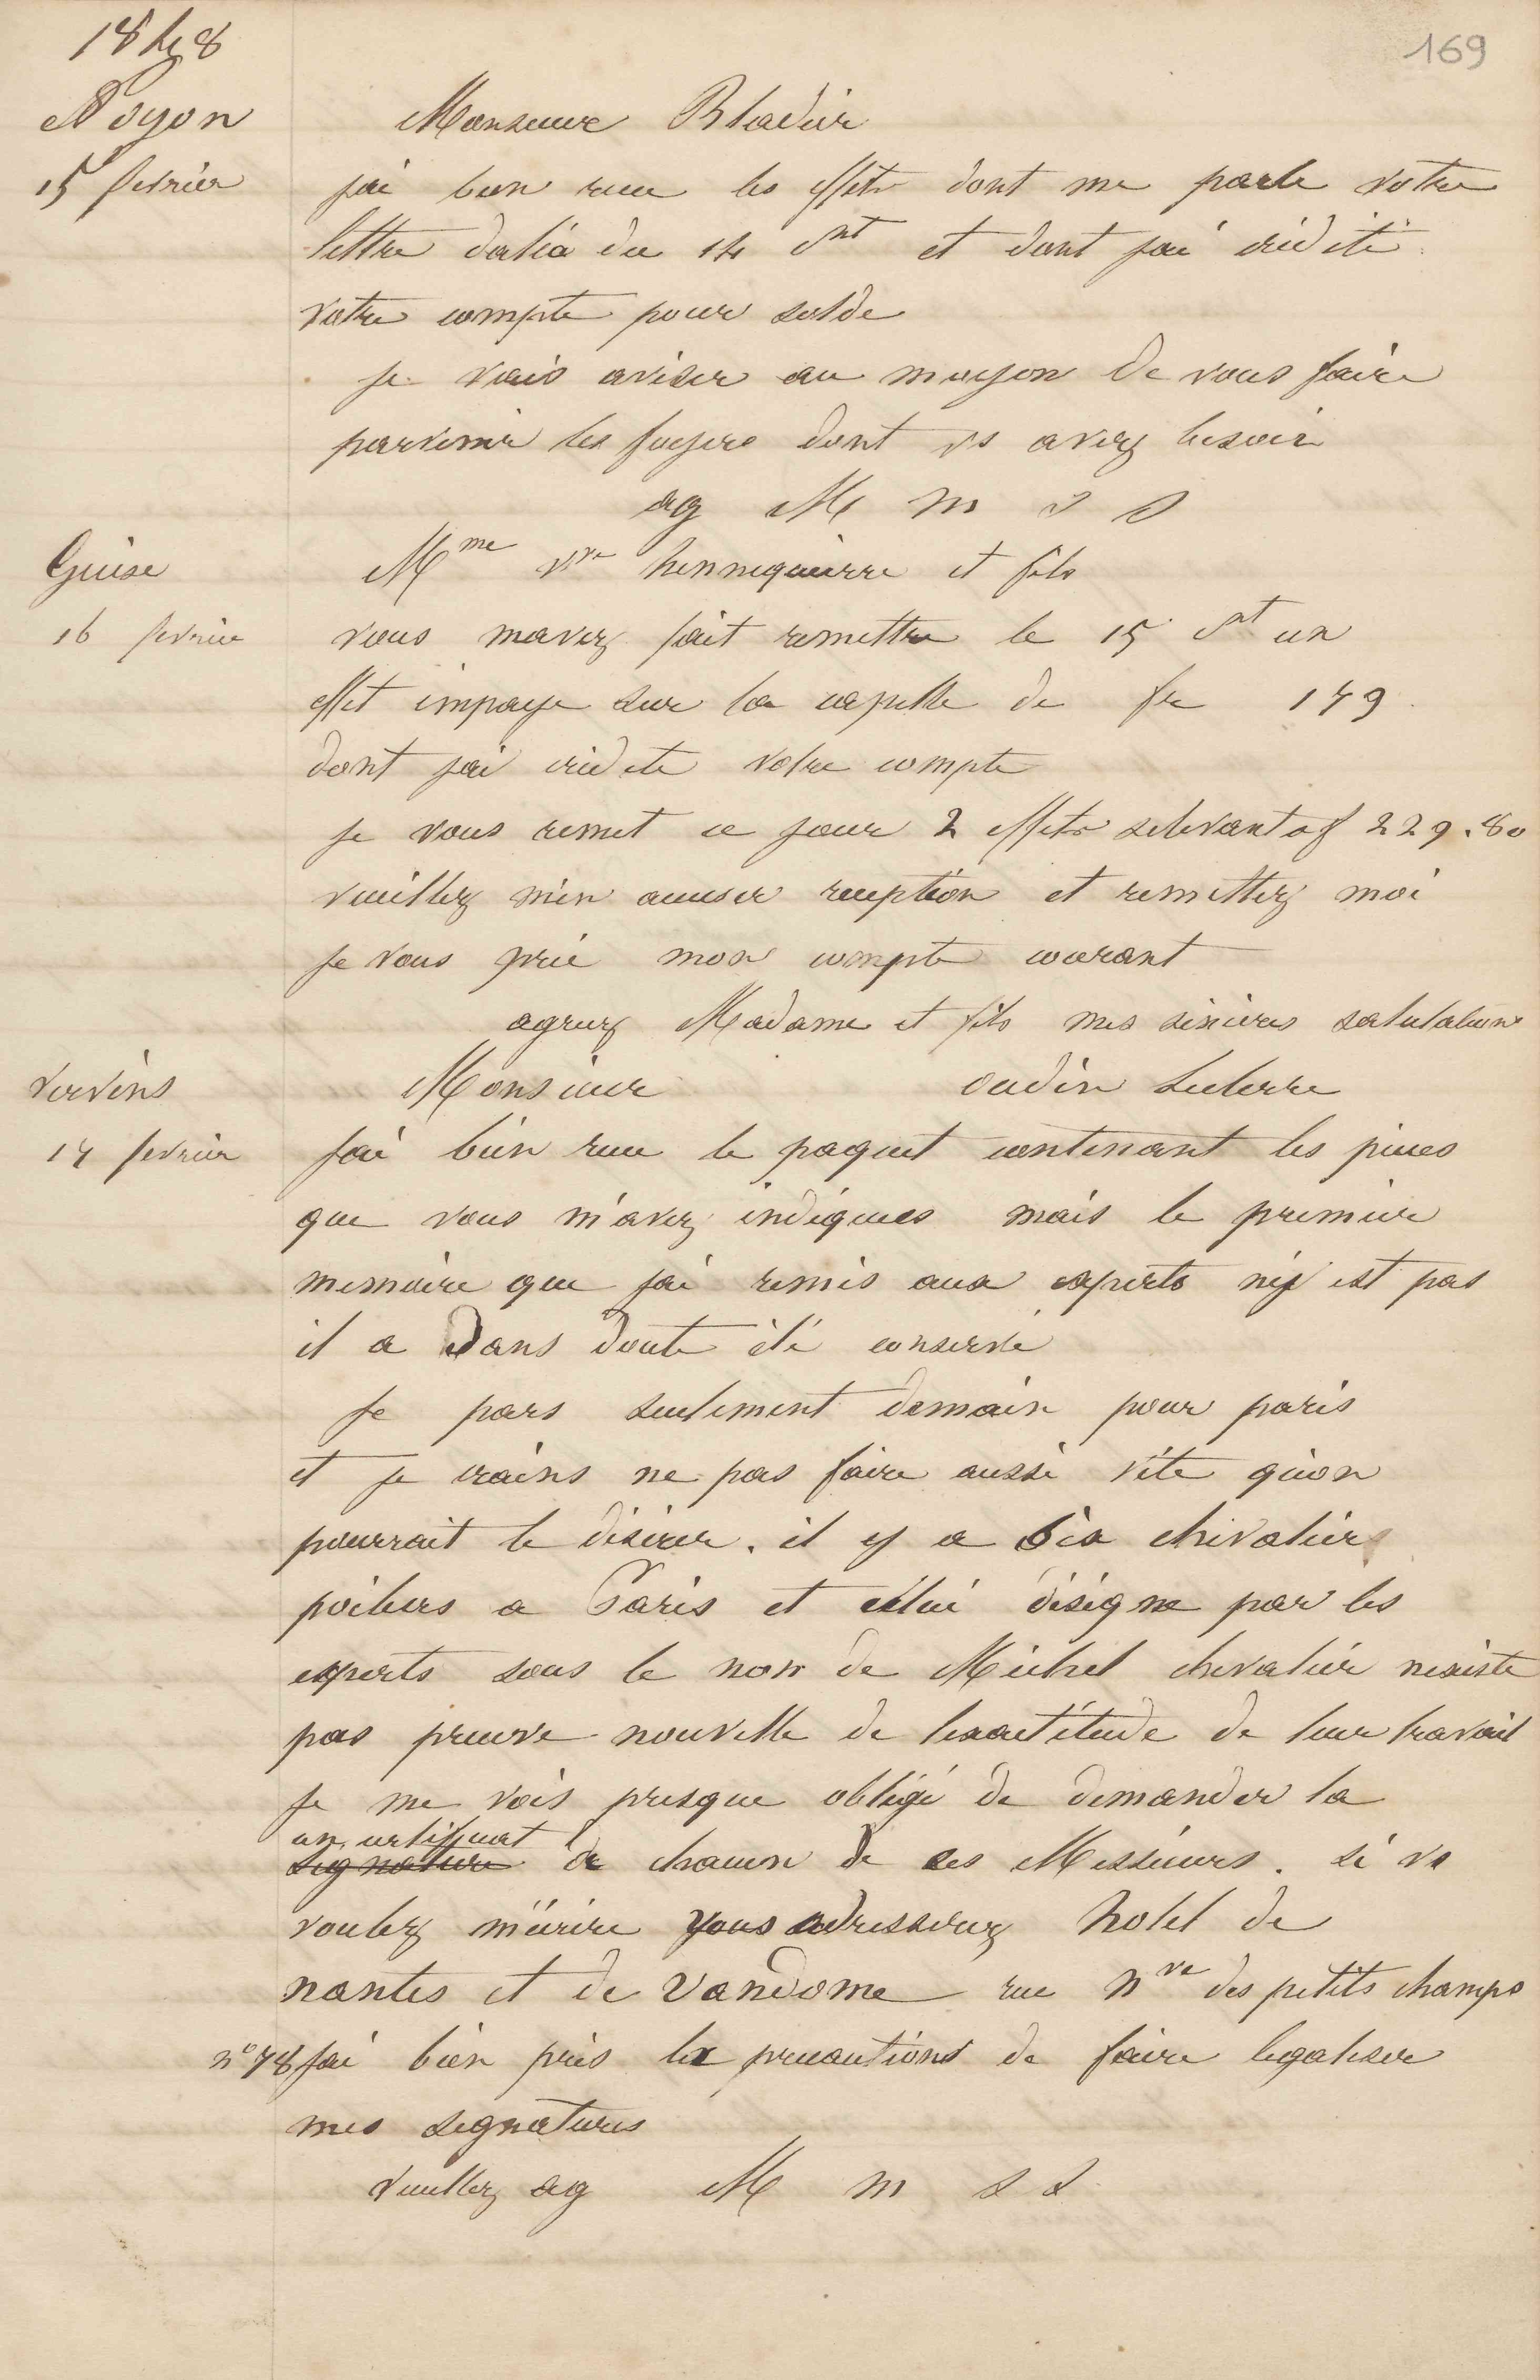 1848
169
Noyon
Monsieur Bladier
15 fevrier
jai bien recu les effets dont me parle votre
lettre datéa du 14 ct et dont jai crédité
votre compte pour solde
je vais aviser au moyen de vous faire
parvenir les foyers dont vs avez besoin
ag M m s s
Guise
Mme vve hennequierre et fils
16 fevrier
vous mavez fait remettre le 15 ct un
effet impaye sur la capelle de fr 149
dont jai credite votre compte
je vous remet ce jour 2 effets selevant a f 229.80
veuillez m'en accuser reception et remettez moi
je vous prie mon compte courant
agreez Madame et fils mes sinceres salutations
Vervins
Monsieur oudin Leclerre
17 fevrier
jai bien recu le paquet contenant les pieces
que vous m'avez indiquees mais le premier
memoire que jai remis aux experts n'y est pas
il a sans doute été conservé
Je pars seulement demain pour paris
et je crains ne pas faire aussi vite qu'on
pourrait le désirer. il y a six chevaliers
poeliers a Paris et celui désigne par les
experts sous le nom de Michel chevalier nexiste
pas preuve nouvelle de lexactitude de leur travail
je me vois presque obligé de demander la
un certificat
signature de chacun de ces Messieurs. si vs
voulez m'écrire vous adresserez hotel de
nantes et de vandome rue nve des petits champs
n° 78 jai bien pris les precautions de faire legaliser
mes signatures
veuillez ag M m s s